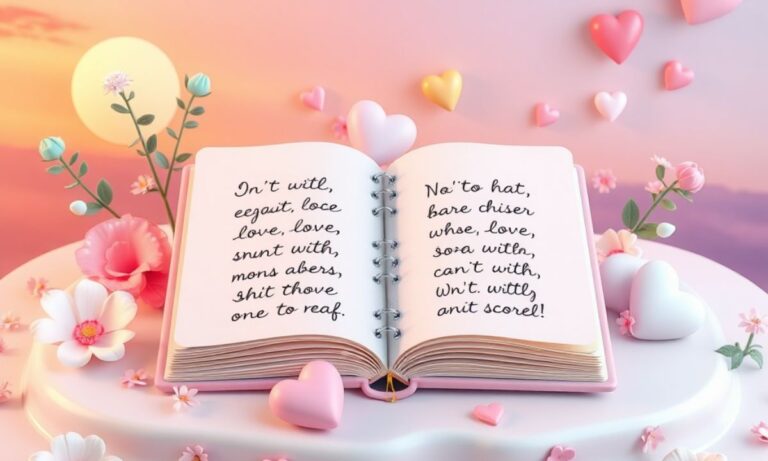 In't witl,
eegaut, loce
love, love,
snunt with,
mons abers,
shit thove
one to reaf.
No''to hat,
bare chiser
whse, love,
soza witln,
can't with,
Wn't. wittly
anit scorel!